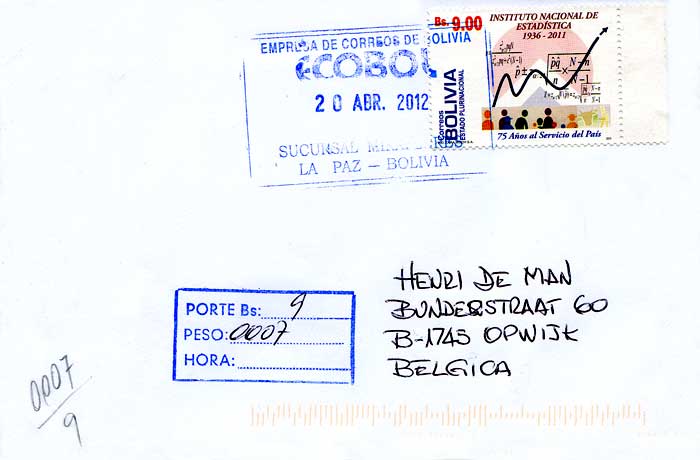 EMPRESA DE CORREOS DE BOLIVIA
ECOBOL
20 ABR. 2012
SUCURSAL
LA PAZ - BOLIVIA
Bs. 9.00
INSTITUTO NACIONAL DE
ESTADÍSTICA
1936 - 2011
Correos
BOLIVIA
ESTADO PLURINACIONAL
75 Años al Servicio del País
HENRI DE MAN
BUNDERSTRAAT 60
B-1745 OPWIJK
BELGICA
PORTE Bs: 9
PESO: 0007
HORA:
0007
9